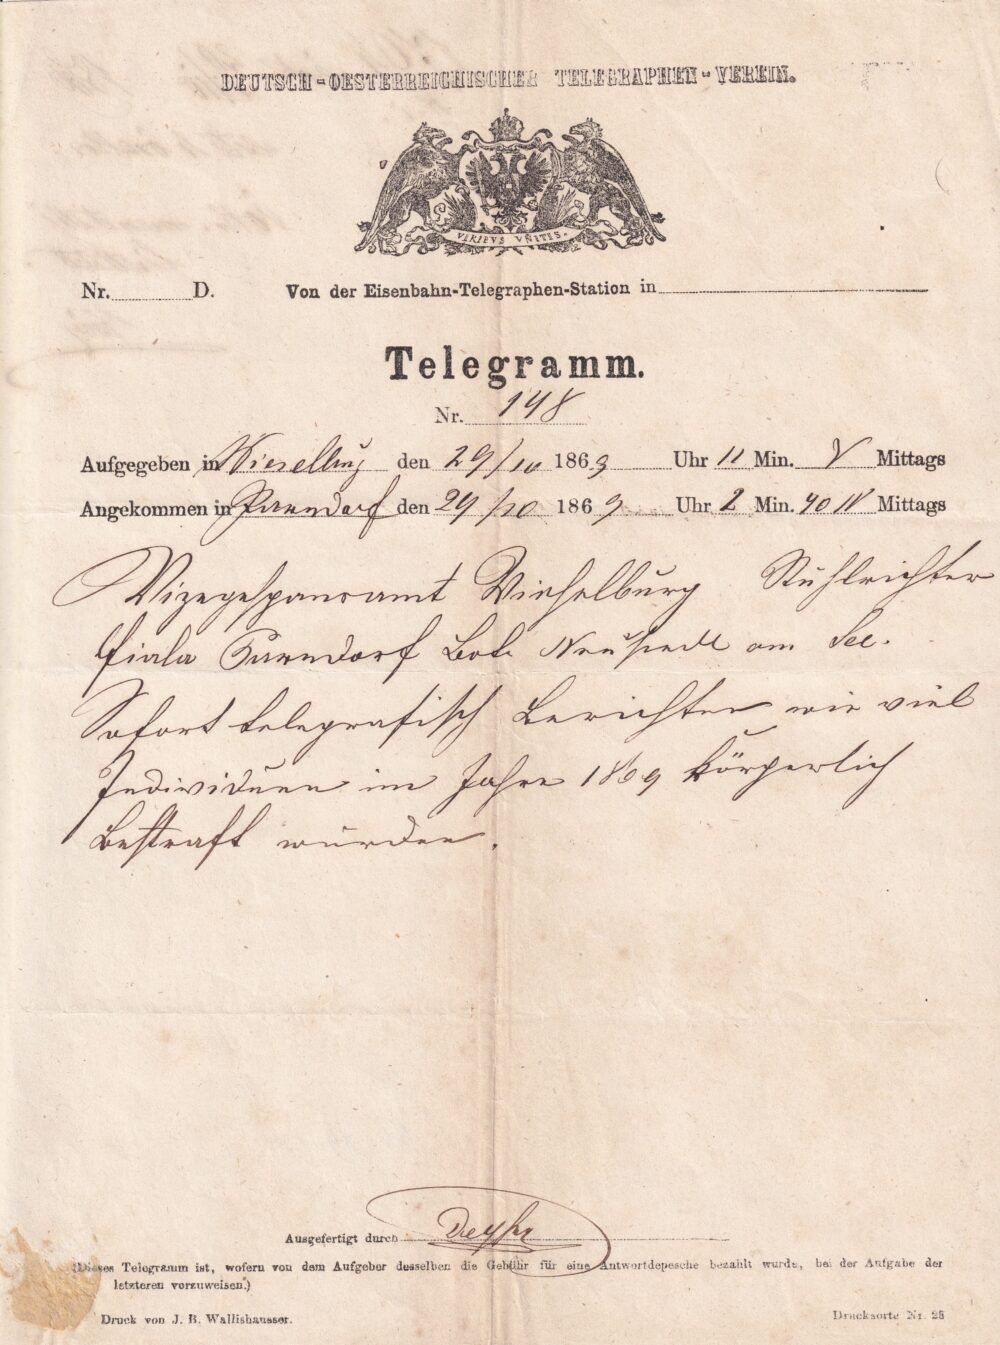 DEUTSCH-OESTERREICHISCHER TELEGRAPHEN-VEREIN.
VIRIBUS UNITIS.
Nr. D. Von der Eisenbahn-Telegraphen-Station in
Telegramm.
Nr. 148
Aufgegeben in Wieselburg den 29/10 1869 Uhr 11 Min. V Mittags
Angekommen in Parndorf den 29/10 1869 Uhr 2 Min. 40 N Mittags
Vizegespansamt Wieselburg Stuhlrichter
Fiala Parndorf Bote Neusiedl am See.
Sofort telegrafisch berichten wie viel
Individuen im Jahre 1869 körperlich
bestraft wurden.
Ausgefertigt durch
(Dieses Telegramm ist, wofern von dem Aufgeber desselben die Gebühr für eine Antwortdepesche bezahlt wurde, bei der Aufgabe der
letzteren vorzuweisen.)
Druck von J. B. Wallishausser. Drucksorte Nr. 25